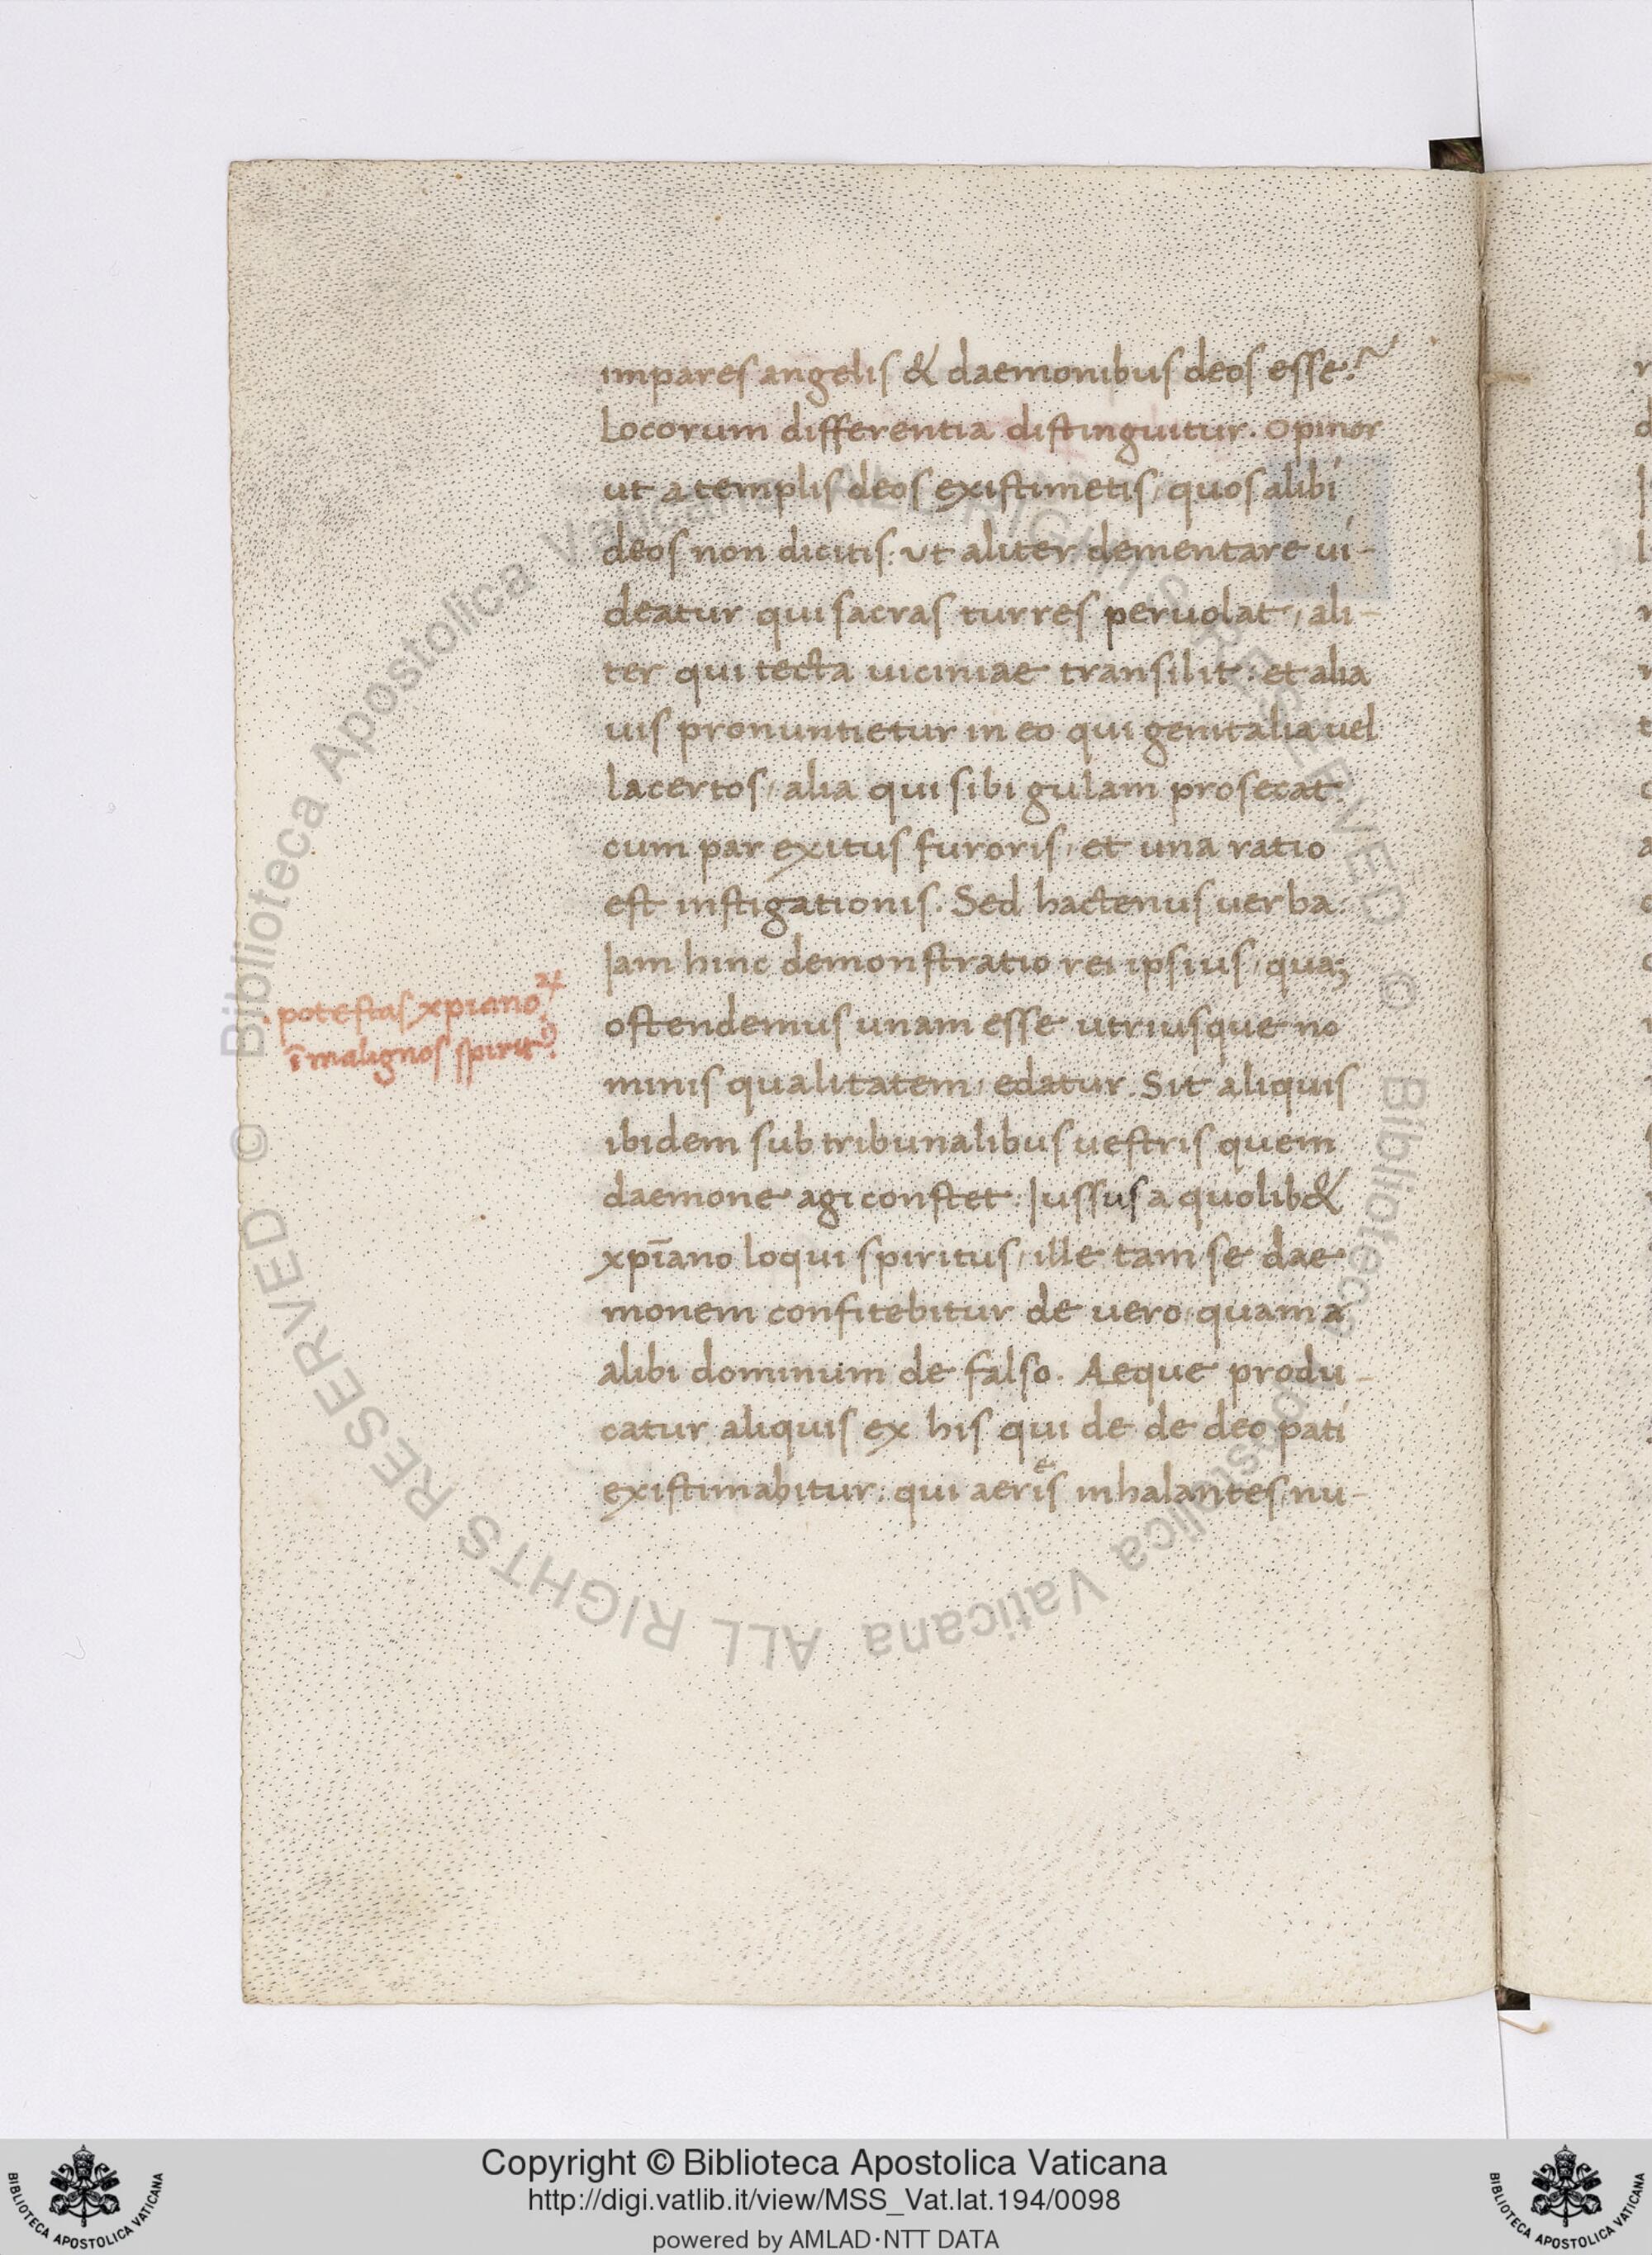 impares angelis & daemonibus deos esse?
Locorum differentia distinguitur. Opinor
ut a templis deos existimetis, quos alibi
deos non dicitis: ut aliter dementare ui-
deatur qui sacras turres peruolat, ali-
ter qui tecta uiciniae transilit: et alia
uis pronuntietur in eo qui genitalia uel
lacertos, alia qui sibi gulam prosecat.
cum par exitus furoris, et una ratio
est instigationis. Sed hactenus uerba.
Iam hinc demonstratio rei ipsius, qua;
potestas xpianoꝝ
ĩ malignos spiritꝰ.
ostendemus unam esse utriusque no
minis qualitatem, edatur. Sit aliquis
ibidem sub tribunalibus uestris quem
daemone agi constet. Iussus a quolib&
xp̄iano loqui spiritus, ille tam se dae
monem confitebitur de uero, quam a
alibi dominum de falso. Aeque produ-
catur aliquis ex his qui de de deo pati
existimabitur: qui aeriẽs inhalantes nu-
© Biblioteca Apostolica Vaticana ALL RIGHTS RESERVED © Biblioteca Apostolica Vaticana ALL RIGHTS RESERVED
Copyright © Biblioteca Apostolica Vaticana
http://digi.vatlib.it/view/MSS_Vat.lat.194/0098
powered by AMLAD·NTT DATA
BIBLIOTECA APOSTOLICA VATICANA
BIBLIOTECA APOSTOLICA VATICANA